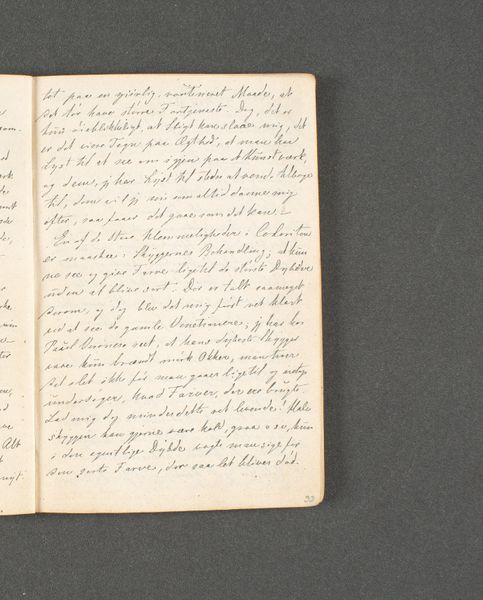 tot paa en giørlig, routineret Maade, at
det tør have større Fortjeneste. Dog, det er
kun øiebliksligt, at Sligt kan slaae mig, det
er det visse Tegn paa Ægthed, at man har
Lyst til at see om igjen paa et Kunstværk,
og dem, jeg har Lyst til stedse at vende tilbage
til, dem vil jeg som altid danne mig
efter, saa faaer det gaae som det kan.
En af de store Hemmeligheder i Coloriten
er maaskee: Skyggernes Behandling; at kun-
ne see og give Farve ligetil de største Dybder
uden at blive sort. Der er talt saameget
derom, og dog blev det mig først ret klart
ved at see de gamle Venetianere; jeg har hos
Paul Veronese seet, at hans dybeste Skygger
vare kun brændt mørk Okker, man troer
det slet ikke før man gaaer ligetil og
undersøger, hvad Farver, der ere brugte.
Lad mig dog mindes dette ret levende! Halv
skyggen kan gjerne være kold, graa o.s.v., kun
i den egentlige Dybde vogte man sig for
den sorte Farve, der saa let bliver død.
Alt
33